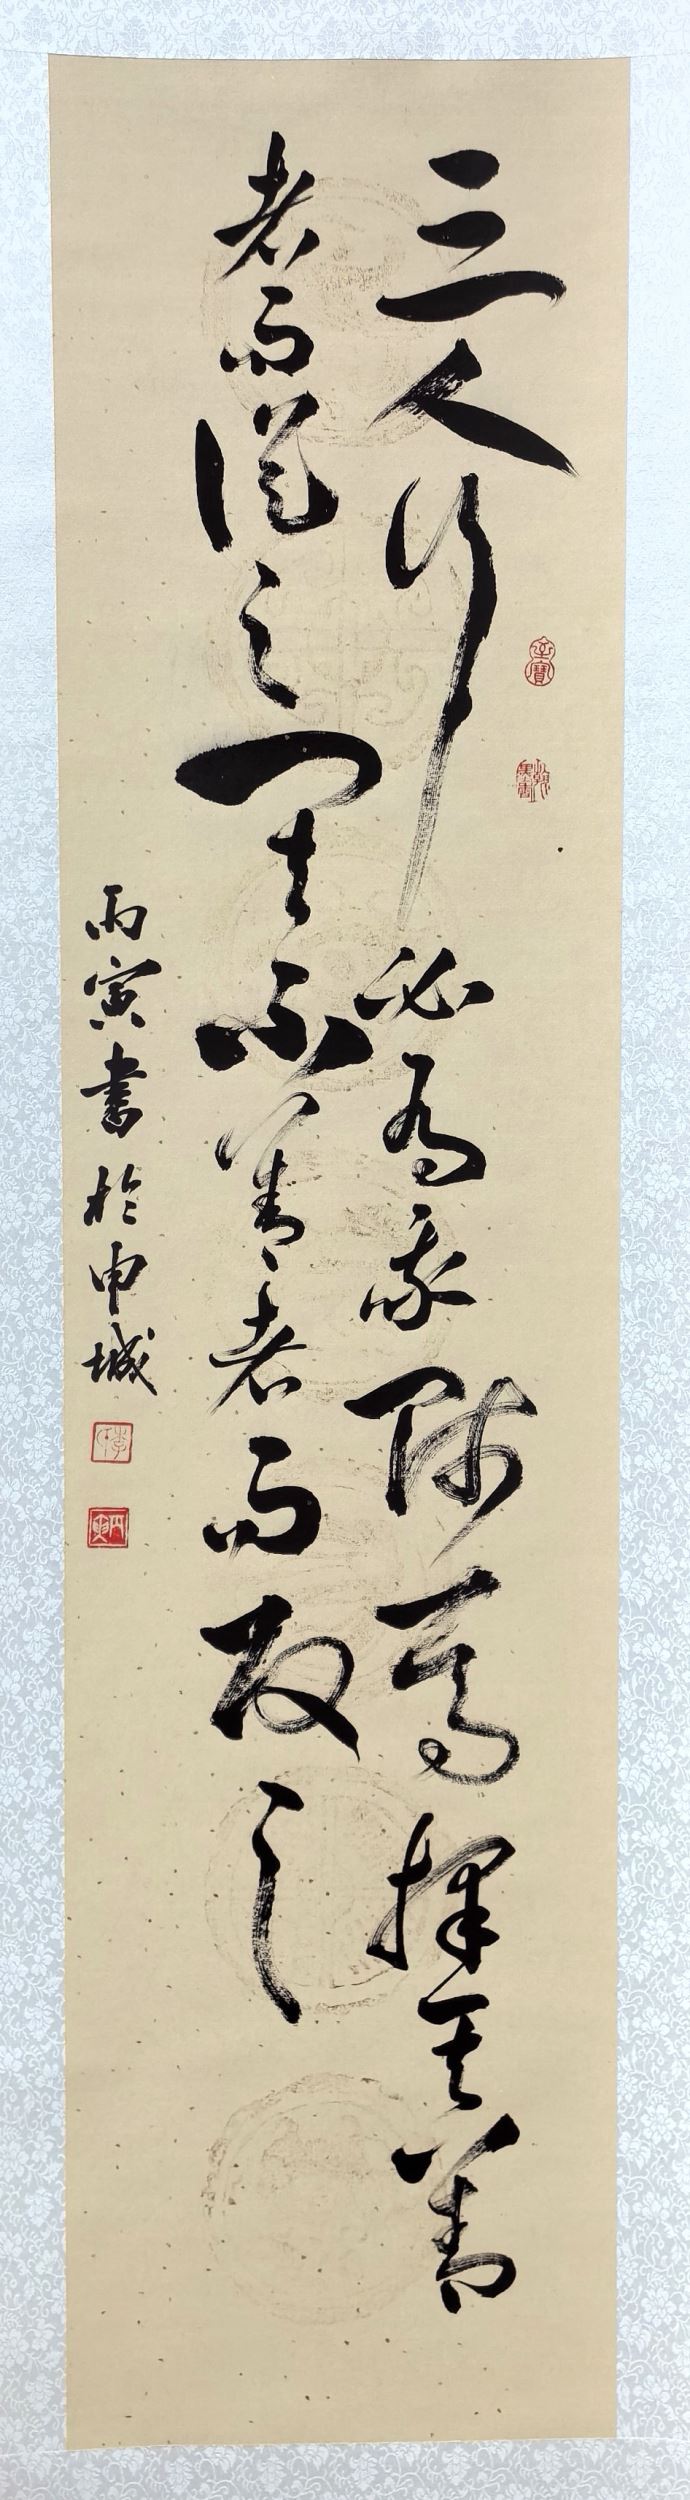 三人行必為我師焉擇其善
者而從之其不善者而改之
丙寅書於申城